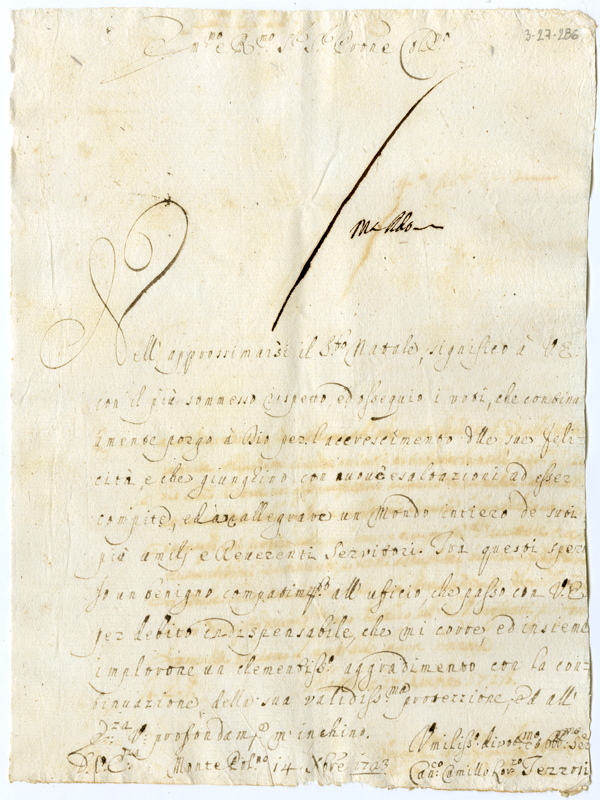 3-27-286
Em.mo e R.mo Sig. Sig. Prone Col.mo
Nell' approssimarsi il S.to Natale, significo à V.E.
con il più sommesso rispetto ed ossequio i voti, che continua
amente porgo à Dio per l'accrescimento delle sue feli-
cità, e che giunghino con nuove esaltazioni ad esser
compite, e rallegrare un Mondo intiero de suoi
più umili e Reverenti Servitori. Trà questi spero
Io un benigno compatim.to all' ufficio che passo con V.E
per debito indispensabile, che mi corre, ed insieme
implorone un clementiss.o aggradimento con la con-
tinuazione della sua validiss.ma protezzione, ed all'
E.za V. profondam.te m' inchino.
D. V. E.za Monte Pol.no 14 Xbre 1723
Umiliss.o divot.mo ed obb.mo Ser
Can.co Camillo Terrosi